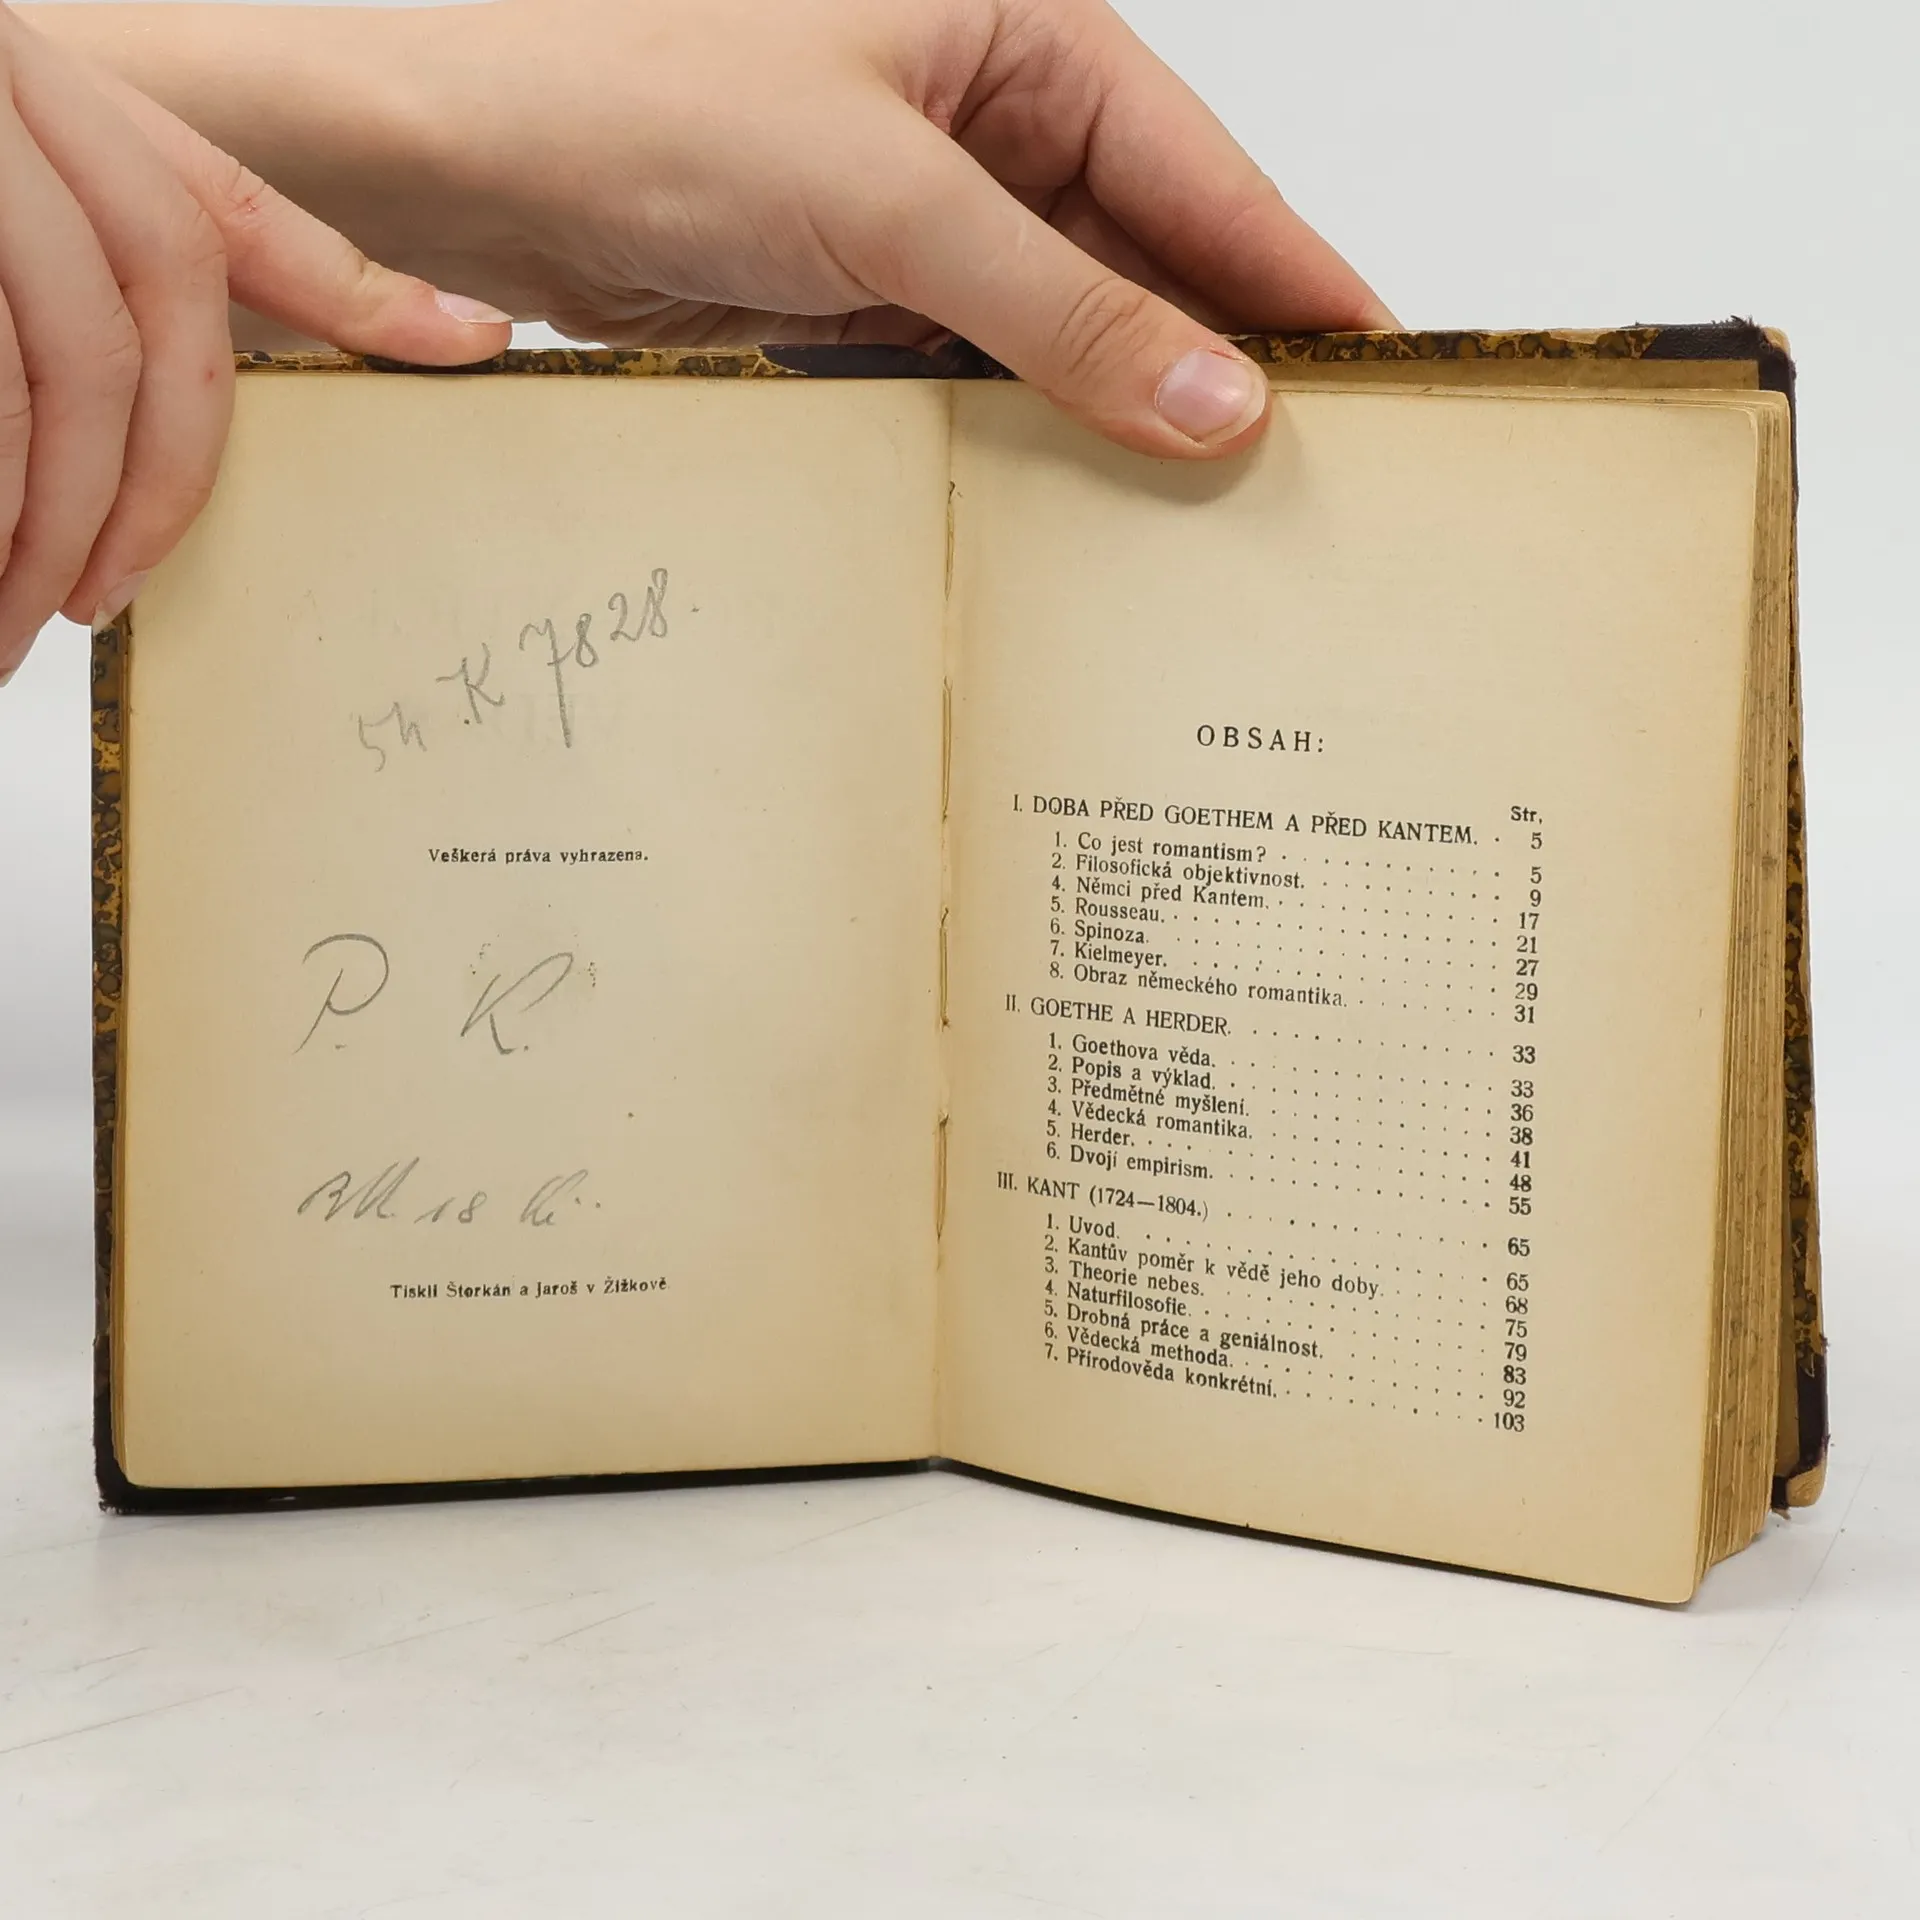 5h K 7828.
Veškerá práva vyhrazena.
P. K.
18
Tiskli Štorkán a Jaroš v Žižkově
OBSAH:
Str,
I. DOBA PŘED GOETHEM A PŘED KANTEM. . 5
1. Co jest romantism? . . . . . . . . . 5
2. Filosofická objektivnost. . . . . . . . 9
4. Němci před Kantem. . . . . . . . . . 17
5. Rousseau. . . . . . . . . . . . . 21
6. Spinoza. . . . . . . . . . . . . 27
7. Kielmeyer. . . . . . . . . . . . . 29
8. Obraz německého romantika. . . . . . . 31
II. GOETHE A HERDER. . . . . . . . . . . 33
1. Goethova věda. . . . . . . . . . . 33
2. Popis a výklad. . . . . . . . . . . 36
3. Předmětné myšlení. . . . . . . . . . 38
4. Vědecká romantika. . . . . . . . . . 41
5. Herder. . . . . . . . . . . . . . 48
6. Dvojí empirism. . . . . . . . . . . 55
III. KANT (1724—1804.) . . . . . . . . . . 65
1. Uvod. . . . . . . . . . . . . . 65
2. Kantův poměr k vědě jeho doby. . . . . . 68
3. Theorie nebes. . . . . . . . . . . 75
4. Naturfilosofie. . . . . . . . . . . . 79
5. Drobná práce a geniálnost. . . . . . . . 83
6. Vědecká methoda. . . . . . . . . . . 92
7. Přírodověda konkrétní. . . . . . . . . 103